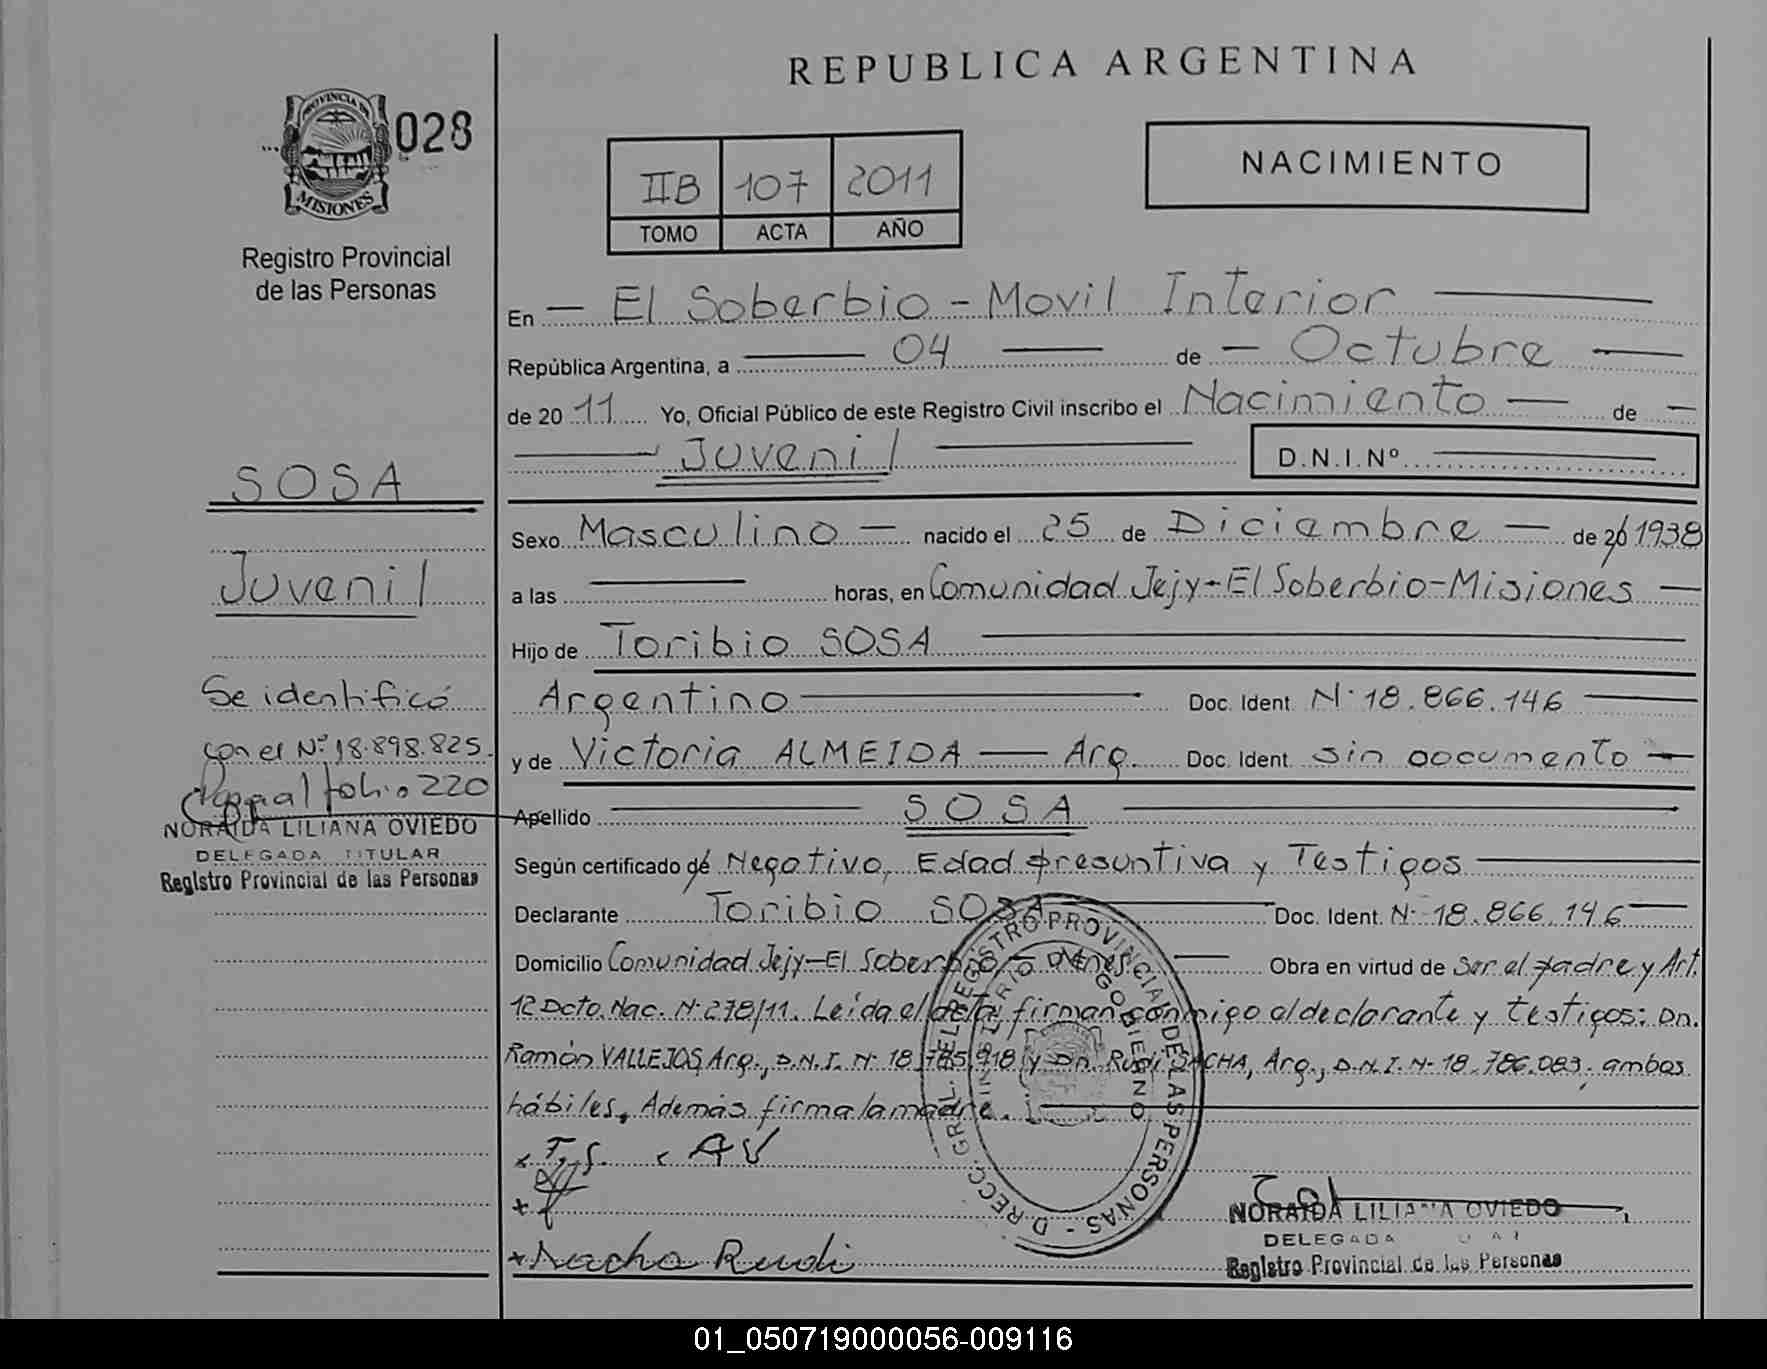 REPUBLICA ARGENTINA
PROVINCIA DE
MISIONES
028
Registro Provincial
de las Personas
IIB 107 2011
TOMO ACTA AÑO
NACIMIENTO
En — El Soberbio - Movil Interior —
República Argentina, a — 04 — de — Octubre —
de 20 11 Yo, Oficial Público de este Registro Civil inscribo el Nacimiento — de —
— Juvenil — D.N.I.Nº —
Sexo Masculino — nacido el 25 de Diciembre — de 20 1938
a las — horas, en Comunidad Jejy-El Soberbio-Misiones —
Hijo de Toribio SOSA —
Argentino — Doc. Ident. N· 18.866.146 —
y de Victoria ALMEIDA — Arg. Doc. Ident. sin documento —
Apellido — SOSA —
Según certificado de Negativo, Edad presuntiva y Testigos —
Declarante Toribio SOSA — Doc. Ident. N· 18.866.146 —
Domicilio Comunidad Jejy-El Soberbio - Mnes. — Obra en virtud de Ser el padre y Art.
12 Dcto. Nac. N· 278/11. Leída el acta, firman conmigo el declarante y testigos: Dn.
Ramón VALLEJOS, Arg., D.N.I. N· 18.785.918 y Dn. Rudi SACHA, Arg., D.N.I. N· 18.786.083, ambos
hábiles. Además firma la madre. —
x T.S. x AV
x
x Sacha Rudi
D RECC. GRAL. DEL REGISTRO PROVINCIAL DE LAS PERSONAS -
MINISTERIO DE GOBIERNO
NORAIDA LILIANA OVIEDO
DELEGADA
Registro Provincial de las Personas
SOSA
Juvenil
Se identificó
con el Nº 18.898.825.
folio 220
NORAIDA LILIANA OVIEDO
DELEGADA TITULAR
Registro Provincial de las Personas
01_050719000056-009116